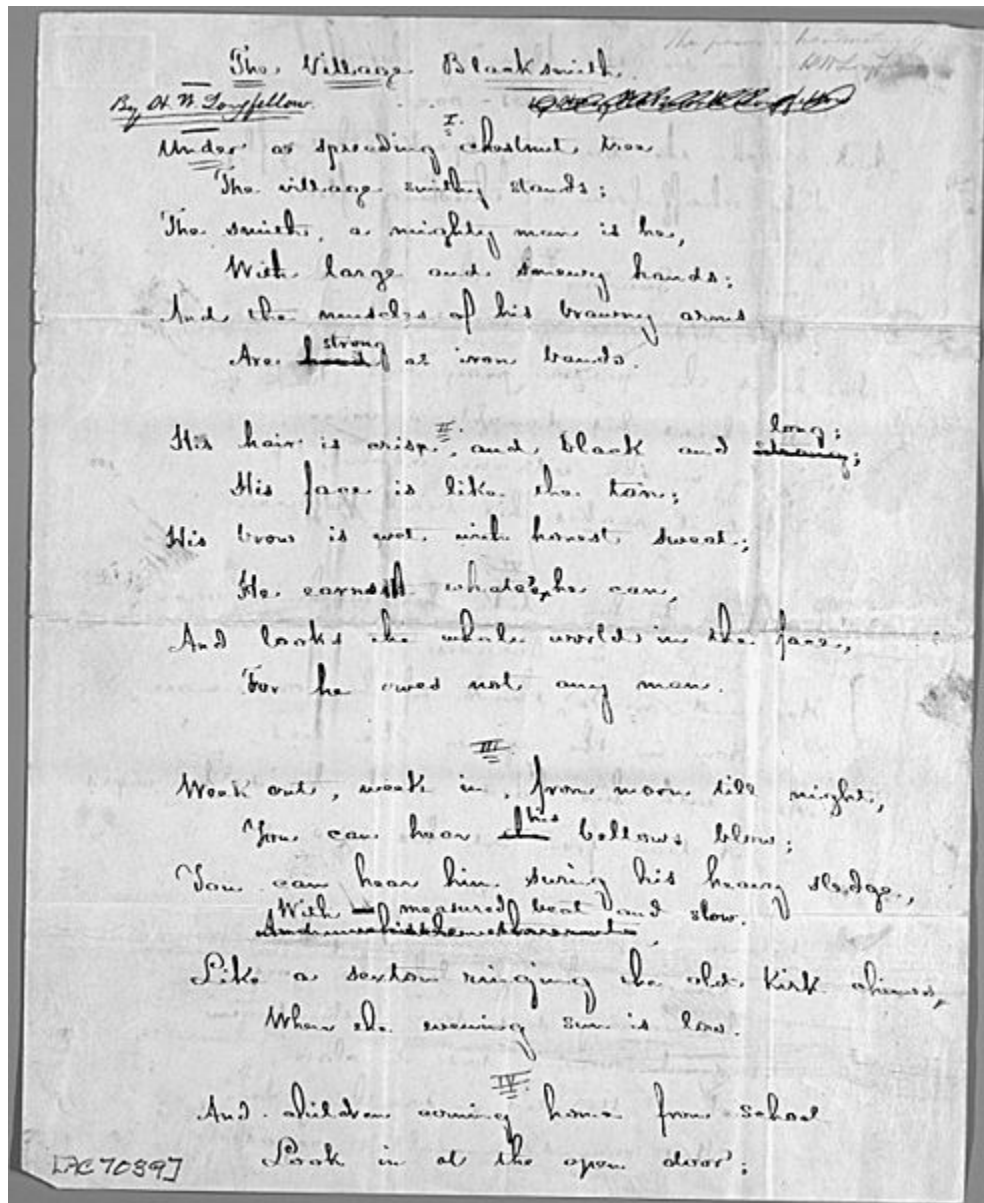 The Village Blacksmith.
By H. W. Longfellow.
I.
Under a spreading chestnut tree
The village smithy stands;
The smith, a mighty man is he,
With large and sinewy hands;
And the muscles of his brawny arms
Are hard strong as iron bands.
II.
His hair is crisp, and black and long;
His face is like the tan;
His brow is wet with honest sweat;
He earns whate'er he can,
And looks the whole world in the face,
For he owes not any man.
III.
Week out, week in, from morn till night,
You can hear his bellows blow;
You can hear him swing his heavy sledge,
With measured beat and slow.
Like a sexton ringing the old kirk chimes,
When the evening sun is low.
IV.
And children coming home from school
Look in at the open door;
[AC 7039]